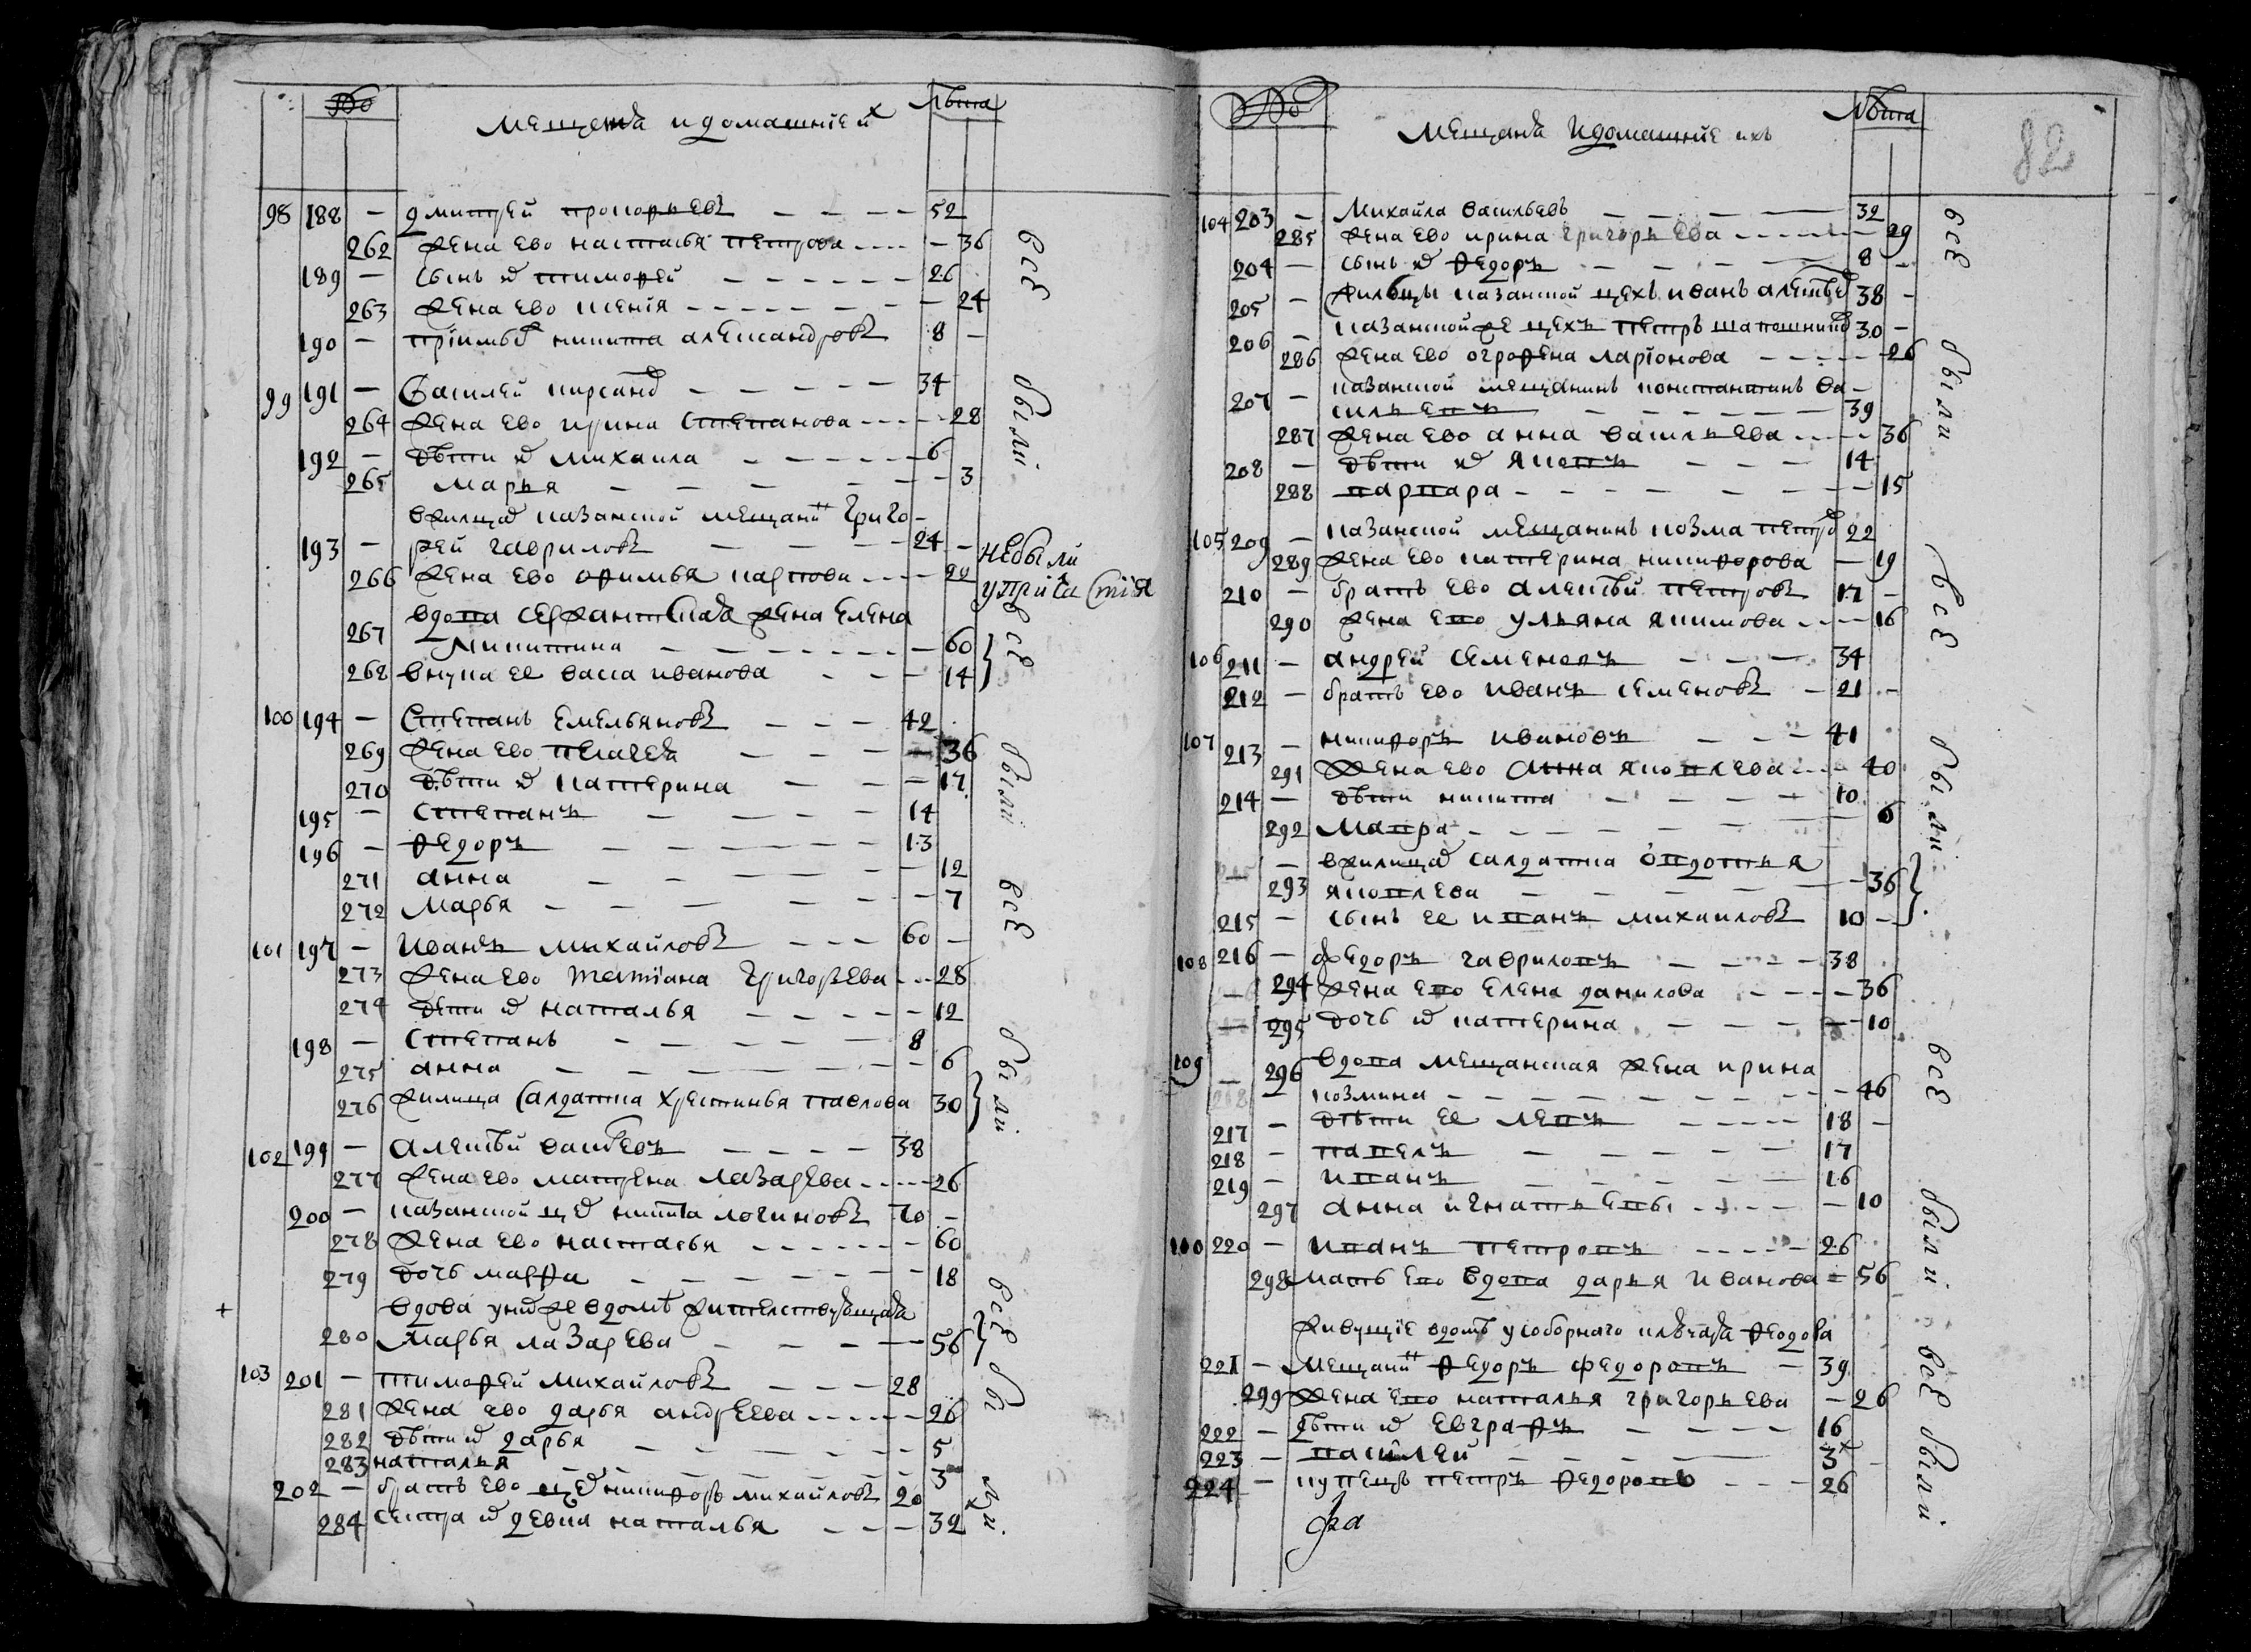 № Мещеня и домашние их лѣта
98 188 — Дмитрей Прокофьевъ — 52
262 Жена ево Настасья Петрова — 36
189 — Сынъ их Тимофей — 26
263 Жена ево Ксенія — 24
190 — Пріимышъ Никита Александровъ 8 —
99 191 — Василей Кирсанов — 34
264 Жена ево Ирина Степанова — 28
192 — Дѣти их Михаила — 6
265 Марья — 3
Вжилцах казанской мещанин Григо-
193 — рей Гавриловъ — 24 —
266 Жена ево Офимья Карпова — 22
Вдова сержантская жена Елена
267 Никитина — 60
268 Внука ее Васса Иванова — 14
100 194 — Степанъ Емельяновъ — 42
269 Жена ево Пелагея — 36
270 Дѣти их Катерина — 17
195 — Степанъ — 14
196 — Федоръ — 13
271 Анна — 12
272 Марья — 7
101 197 — Иванъ Михайловъ — 60 —
273 Жена ево Татіана Григорьева — 28
274 Дети их Наталья — 12
198 — Степанъ — 8
275 Анна — 6
276 Жилица салдатка Хрестинья Павлова 30
102 199 — Алексѣй Васильевъ — 38
277 Жена ево Матрена Лазарева — 26
200 — Казанской цех Никита Логиновъ 70 —
278 Жена ево Настасья — 60
279 Дочь Марфа — 18
+ Вдова у них же вдомѣ жителствующая
280 Марья Лазарева — 56
103 201 — Тимофей Михайловъ — 28
281 Жена ево Дарья Андреева — 26
282 Дѣти их Дарья — 5
283 Наталья — 3
202 — Братъ ево цех Никифоръ Михайловъ 20
284 Сестра их девка Наталья — 32
всѣ
были
небыли
упричастія
всѣ
были
всѣ
были
всѣ бы
ли.
82
№ Мещаня и домашніе ихъ лѣта
104 203 — Михайла Васильевъ — 32
285 Жена ево Ирина Григорьева — 29
204 — Сынъ их Федоръ — 8 —
205 — Жильцы казанской цехъ Иванъ Алексѣев 38 —
206 — Казанской же цехъ Петръ Шапошников 30 —
286 Жена ево Огрофена Ларіонова — 26
Казанской мещанинъ Константинъ Ва-
207 — сильевъ — 39
287 Жена ево Анна Васильева — 36
208 — Дѣти их Яковъ — 14
288 Варвара — 15
105 209 — Казанской мещанинъ Козма Петров 22
289 Жена ево Катерина Никифорова — 19
210 — Братъ ево Алексѣй Петровъ 17 —
290 Жена ево Ульяна Якимова — 16
106 211 — Андрей Семеновъ — 34
212 — Братъ ево Иванъ Семеновъ — 21 —
107 213 — Никифоръ Ивановъ — 41
291 Жена ево Анна Яковлева — 40
214 — Дѣти Никита — 10
292 Мавра — 6
Вжилицах салдатка Овдотья
293 Яковлева — 36
215 — Сынъ ее Иванъ Михаиловъ 10 —
108 216 — Федоръ Гавриловъ — 38
294 Жена ево Елена Данилова — 36
295 Дочь их Катерина — 10
109 Вдова мещанская жена Ирина
296 Козмина — 46
217 — Дѣти ее Левъ — 18 —
218 — Павелъ — 17
219 — Иванъ — 16
297 Анна Игнатьевы — 10
110 220 — Иванъ Петровъ — 26
298 Мать ево вдова Дарья Иванова — 56
Живущіе вдомѣ у соборнаго ключаря Феодора
221 — Мещанин Федоръ Федоровъ — 39
299 Жена ево Наталья Григорьева — 26
222 — Дѣти их Евграфъ — 16
223 — Василей — 3
224 — Купецъ Петръ Федоровъ — 26
всѣ
были
всѣ
были
всѣ
были
всѣ были